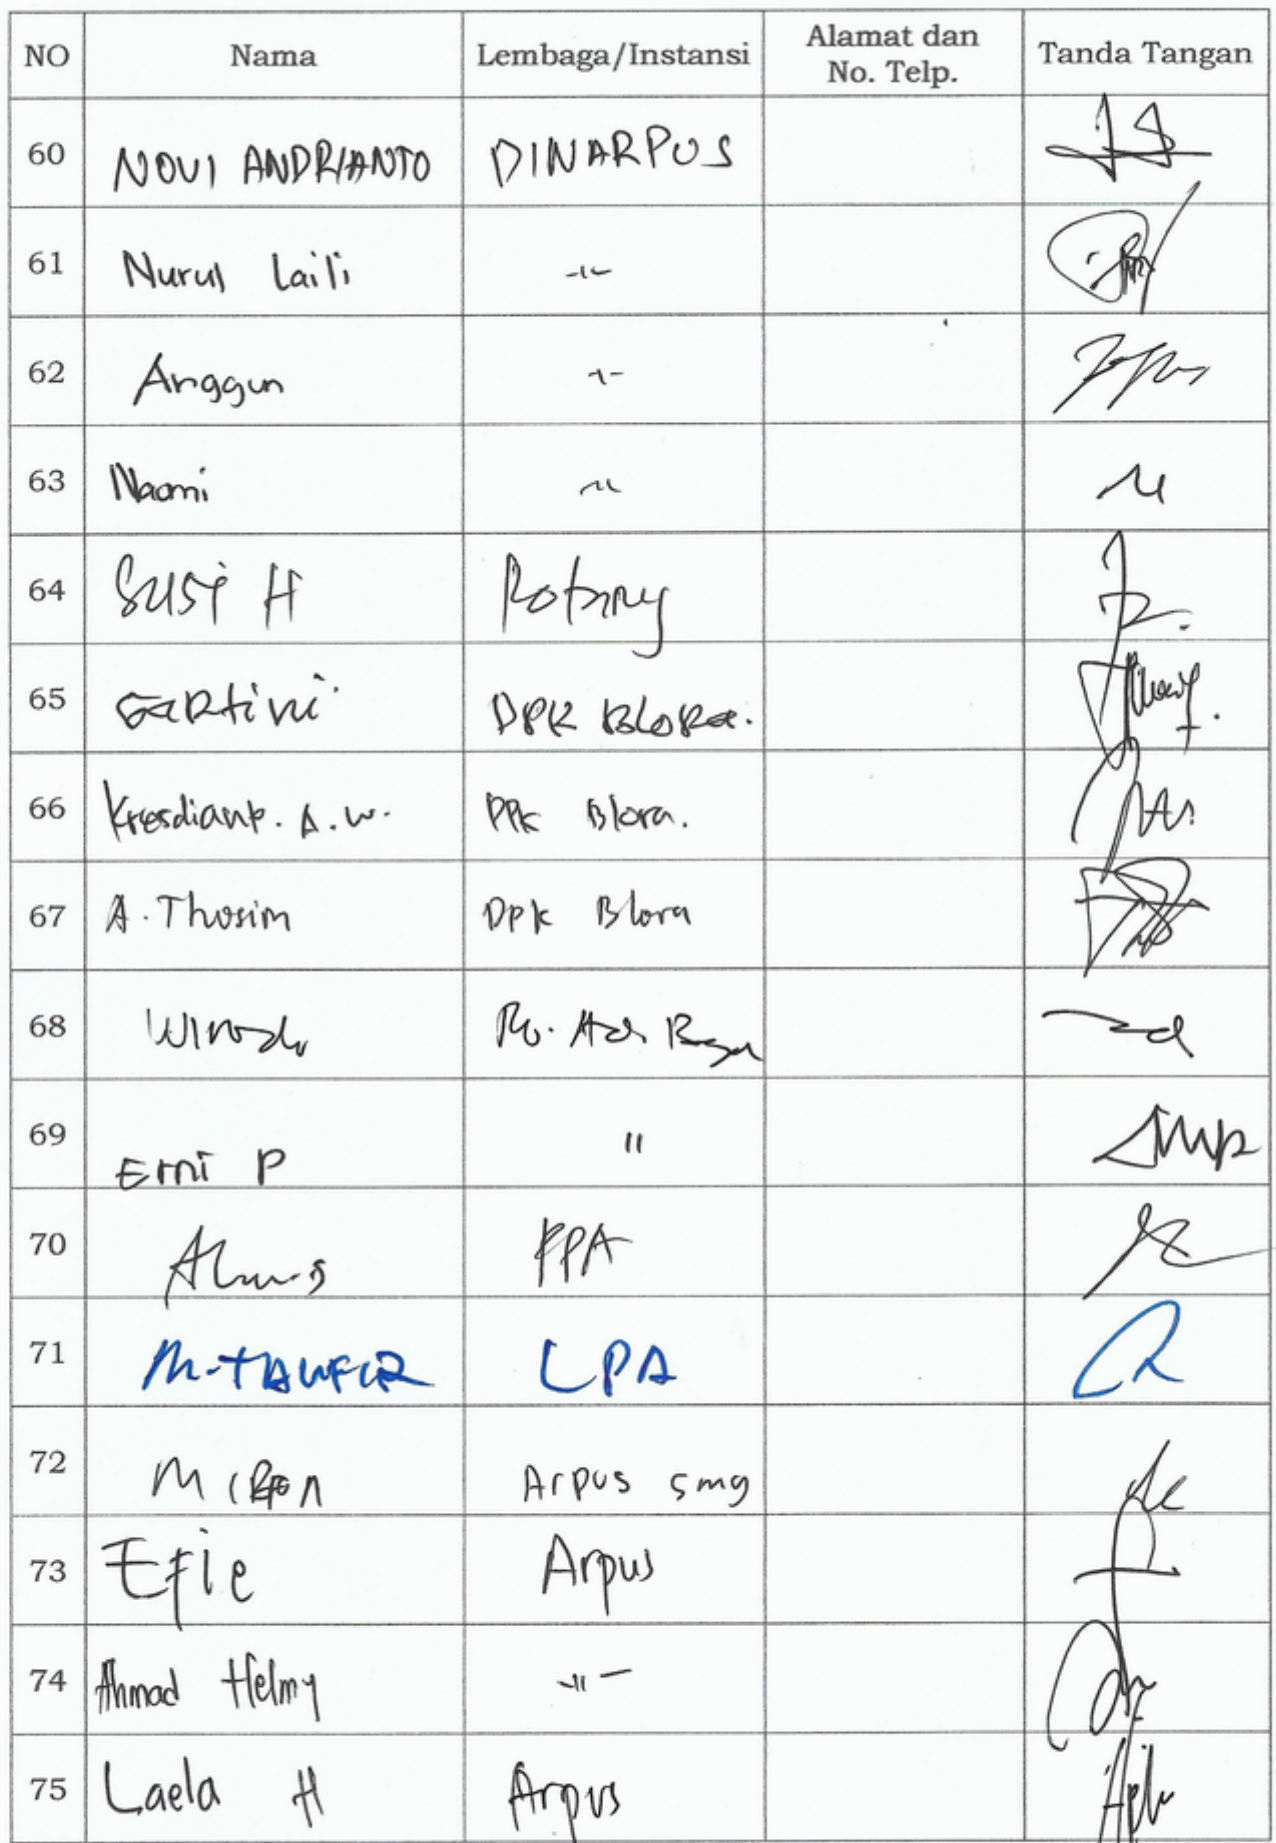 NO Nama Lembaga/Instansi Alamat dan No. Telp. Tanda Tangan
60 NOVI ANDRIANTO DINARPUS
61 Nurul Laili -"-
62 Anggun -"-
63 Naomi -"-
64 SUSI H Rotary
65 Sartini DPK BLORA.
66 A.W. DPK Blora.
67 A. Thosim Dpk Blora
68
69 Erni P "
70 PPA
71 M. TAUFIR LPA
72 Arpus smg
73 Efie Arpus
74 Ahmad Helmy -"-
75 Laela H Arpus